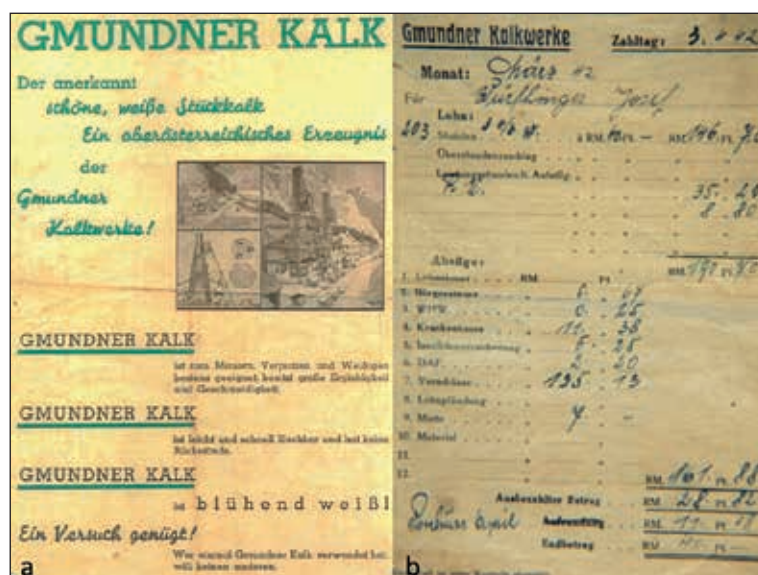 GMUNDNER KALK
Der anerkannt
schöne, weiße Stückkalk
Ein oberösterreichisches Erzeugnis
der
Gmundner
Kalkwerke!
GMUNDNER KALK
ist zum Mauern, Verputzen und Weißigen
bestens geeignet, besitzt große Ergiebigkeit
und Geschmeidigkeit.
GMUNDNER KALK
ist leicht und schnell löschbar und hat keine
Rückstände.
GMUNDNER KALK
ist blühend weiß!
Ein Versuch genügt!
Wer einmal Gmundner Kalk verwendet hat,
will keinen anderen.
a
Gmundner Kalkwerke Zahltag: 3. 4 42
Monat: März 42
Für Josef
Lohn:
203 Stunden à RM. Pf. — RM. 146 Pf.
Überstundenzuschlag
35.
8 80
RM. 190 Pf.
Abzüge:
1. Lohnsteuer RM. Pf.
2. Bürgersteuer
3. WHW 0 25
4. Krankenkasse 11 38
5. Invalidenversicherung
6. DAF 20
7. Vorschüsse 135 13
8. Lohnpfändung
9. Miete 7 -
10. Material
11.
12.
RM. 161 Pf. 88
Ausbezahlter Betrag RM. 28 Pf. 82
April RM. 11 Pf. 18
Endbetrag RM.
b